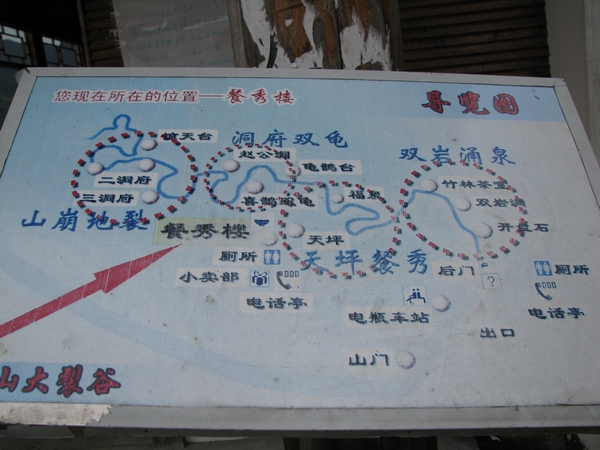 您现在所在的位置——餐秀楼
导览图
天台
洞府双龟
赵公洞
龟鹊台
双岩涌泉
二洞府
三洞府
喜鹊
福泉
竹林茶室
双岩洞
山崩地裂
餐秀楼
天坪
开盘石
厕所
天坪餐秀
后门
?
厕所
小卖部
电话亭
电瓶车站
电话亭
出口
山门
山大裂谷